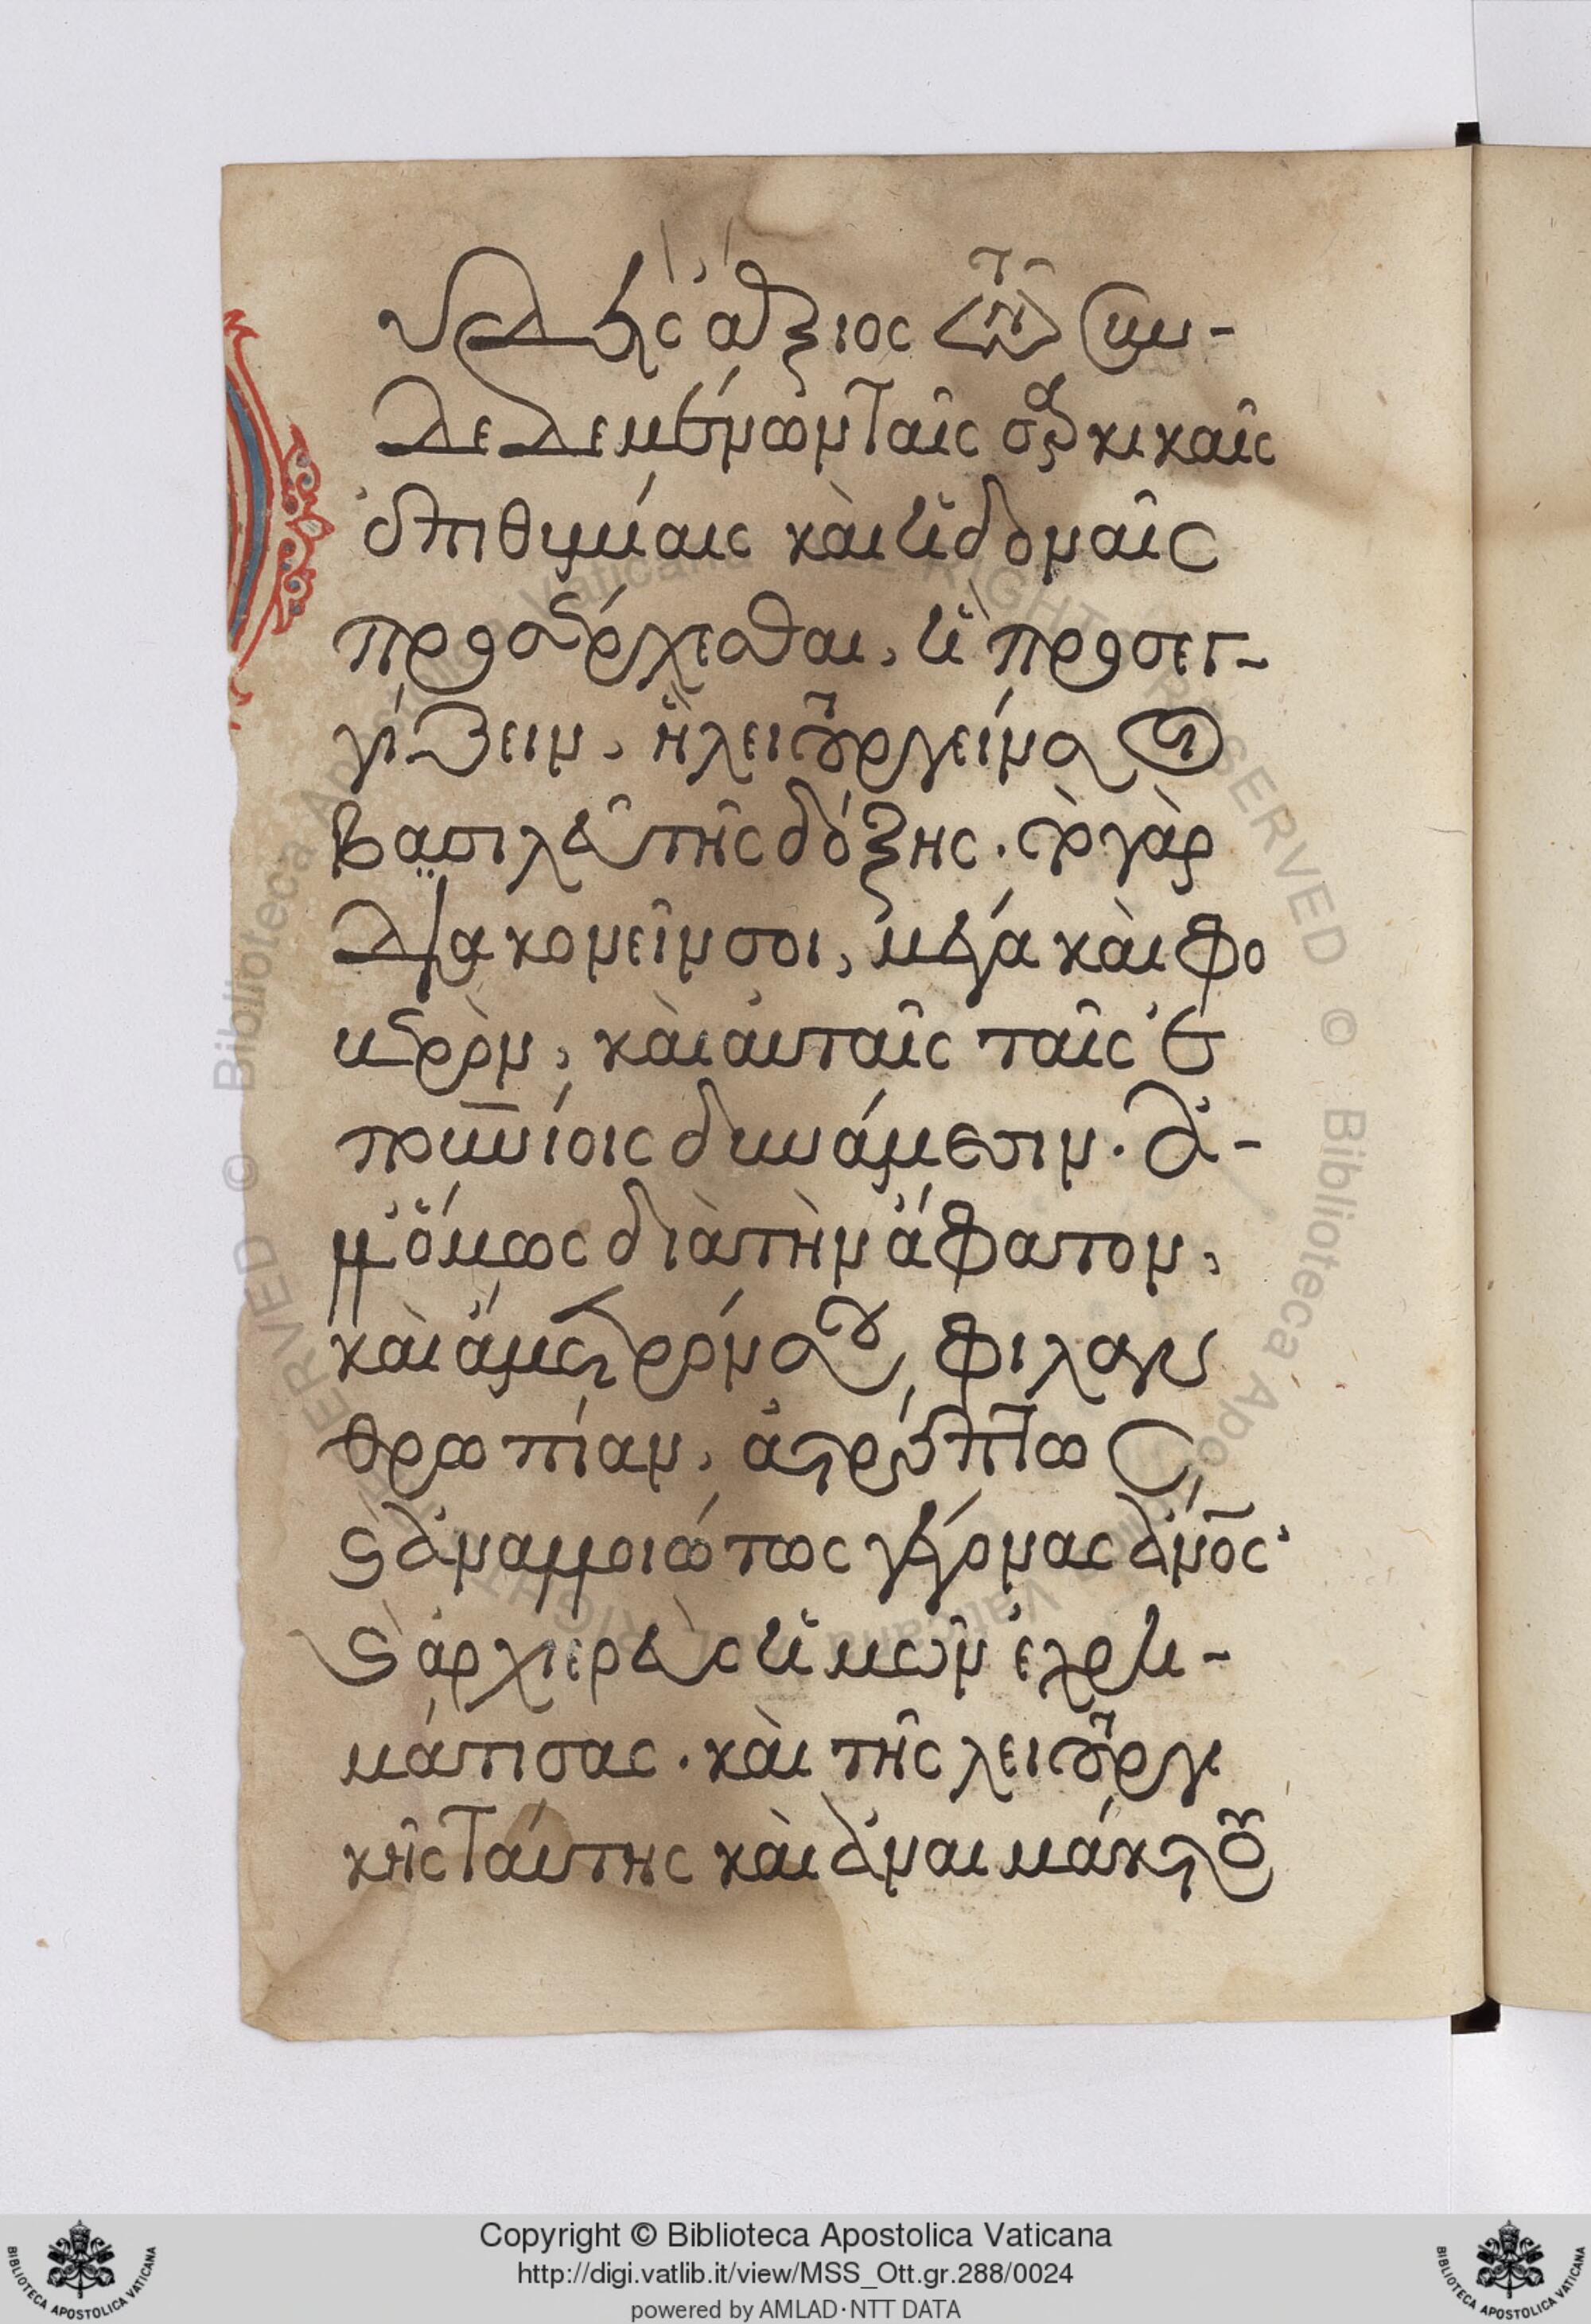 Οὐδεὶς ἄξιος τῶν συν-
δεδεμένων ταῖς σαρκικαῖς
ἐπιθυμίαις καὶ ἡδοναῖς
προσέρχεσθαι, ἢ προσεγ-
γίζειν, ἢ λειτουργεῖν σοι
βασιλεῦ τῆς δόξης. τὸ γὰρ
διακονεῖν σοι, μέγα καὶ φο
βερὸν, καὶ αὐταῖς ταῖς ἐ
πουνίοις δυνάμεσιν. ἀλ-
λ' ὅμως διὰ τὴν ἄφατον,
καὶ ἀμέτρητόν σου φιλαν
θρωπίαν, ἀτρέπτως
καὶ ἀναλλοιώτως γέγονας ἄνος·
καὶ ἀρχιερεὺς ἡμῶν ἐχρη-
μάτισας. καὶ τῆς λειτουργι
κῆς ταύτης καὶ ἀναιμάκτου
Copyright © Biblioteca Apostolica Vaticana
http://digi.vatlib.it/view/MSS_Ott.gr.288/0024
powered by AMLAD·NTT DATA